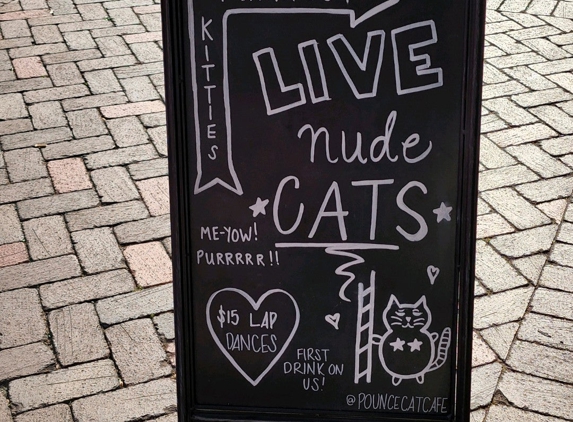 KITTIES
LIVE
nude
CATS
ME-YOW!
PURRRRR!!
$15 LAP
DANCES
FIRST
DRINK ON
US!
@POUNCECATCAFE